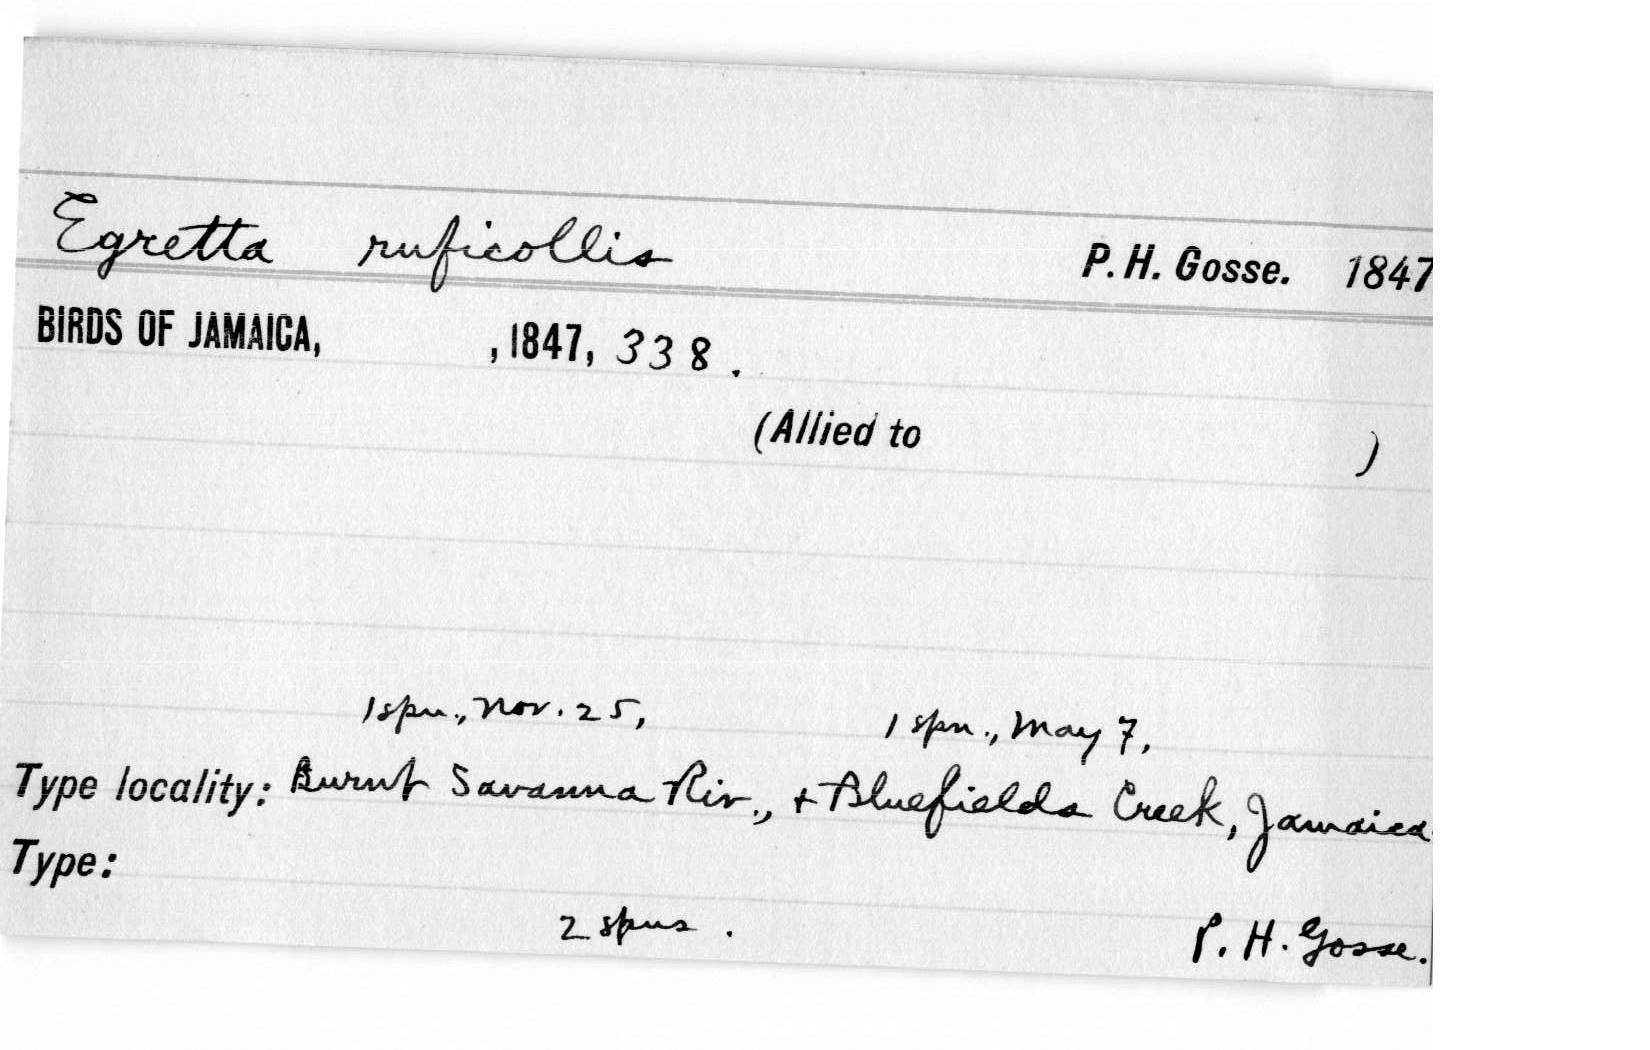 Egretta ruficollis P. H. Gosse. 1847
BIRDS OF JAMAICA, , 1847, 338.
(Allied to )
1 spn., Nov. 25, 1 spn., May 7,
Type locality: Burnt Savanna Riv., + Bluefields Creek, Jamaica.
Type:
2 spns. P. H. Gosse.